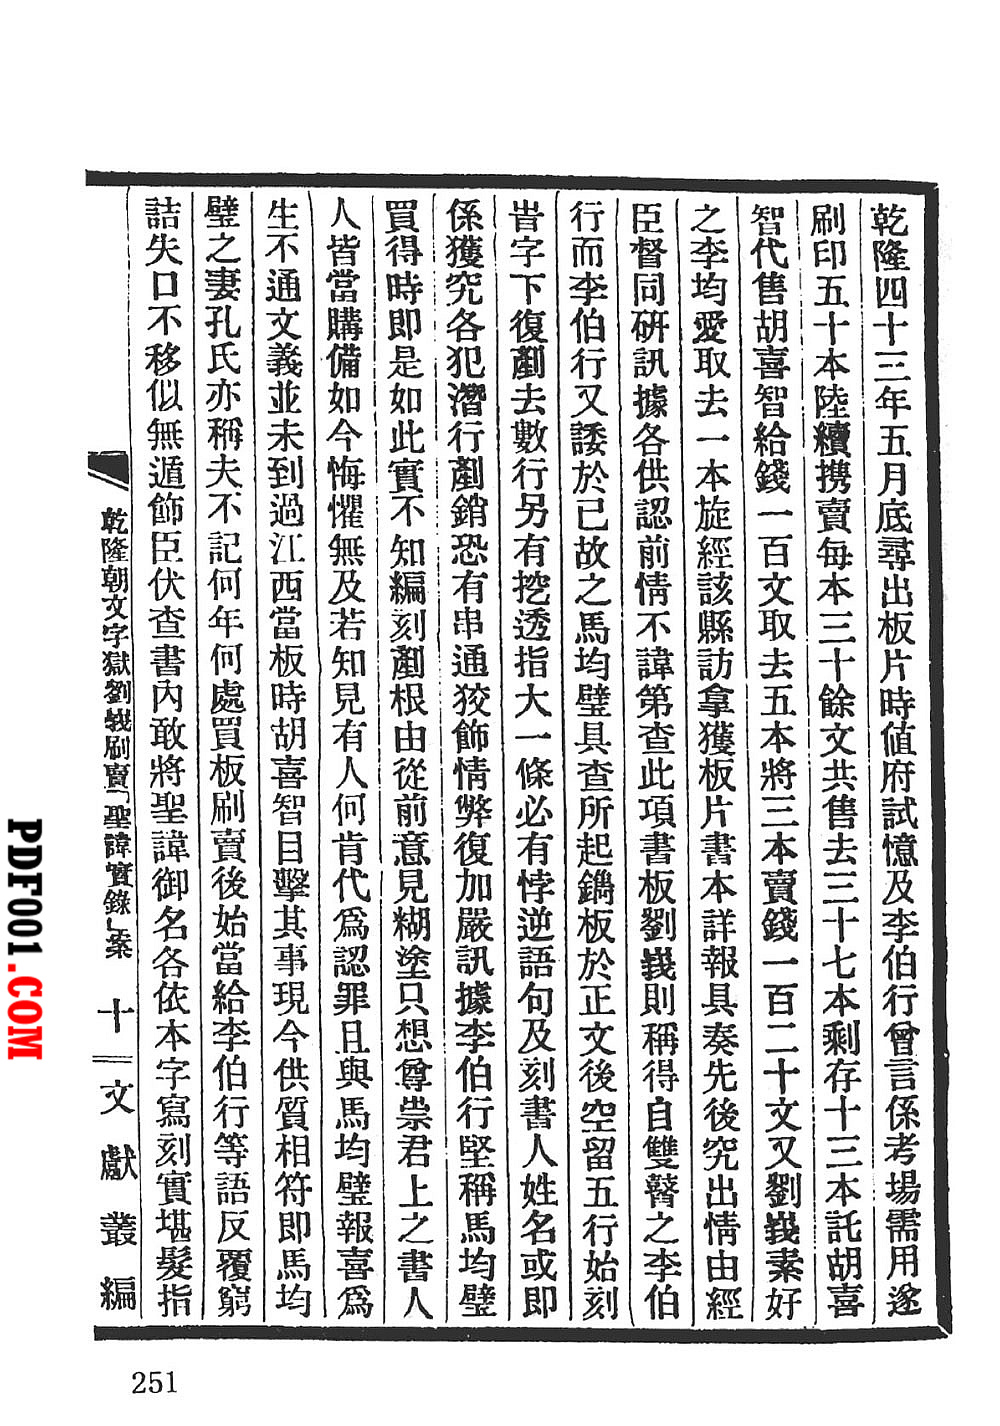 乾隆四十三年五月底尋出板片時値府試憶及李伯行曾言係考場需用遂
刷印五十本陸續携賣每本三十餘文共售去三十七本剩存十三本託胡喜
智代售胡喜智給錢一百文取去五本將三本賣錢一百二十文又劉峩素好
之李均愛取去一本旋經該縣訪拿獲板片書本詳報具奏先後究出情由經
臣督同研訊據各供認前情不諱第查此項書板劉峩則稱得自雙瞽之李伯
行而李伯行又諉於已故之馬均璧具查所起鐫板於正文後空留五行始刻
旹字下復劃去數行另有挖透指大一條必有悖逆語句及刻書人姓名或即
係獲究各犯潛行劃銷恐有串通狡飾情弊復加嚴訊據李伯行堅稱馬均璧
買得時即是如此實不知編刻劃根由從前意見糊塗只想尊崇君上之書人
人皆當購備如今悔懼無及若知見有人何肯代爲認罪且與馬均璧報喜爲
生不通文義並未到過江西當板時胡喜智目擊其事現今供質相符即馬均
璧之妻孔氏亦稱夫不記何年何處買板刷賣後始當給李伯行等語反覆窮
詰失口不移似無遁飾臣伏查書內敢將聖諱御名各依本字寫刻實堪髮指
乾隆朝文字獄劉峩刷賣「聖諱實錄」案 十 文獻叢編
251
PDF001.COM